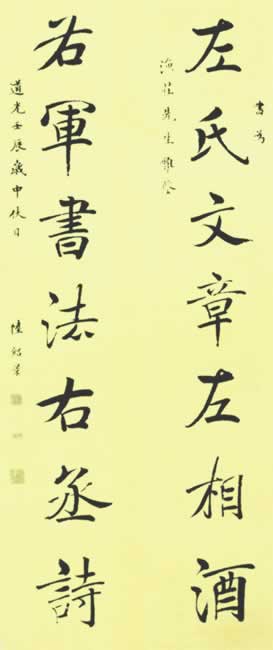 書為
左氏文章左相酒
先生雅
右軍書法右丞詩
道光壬辰歲中秋日
陸紹